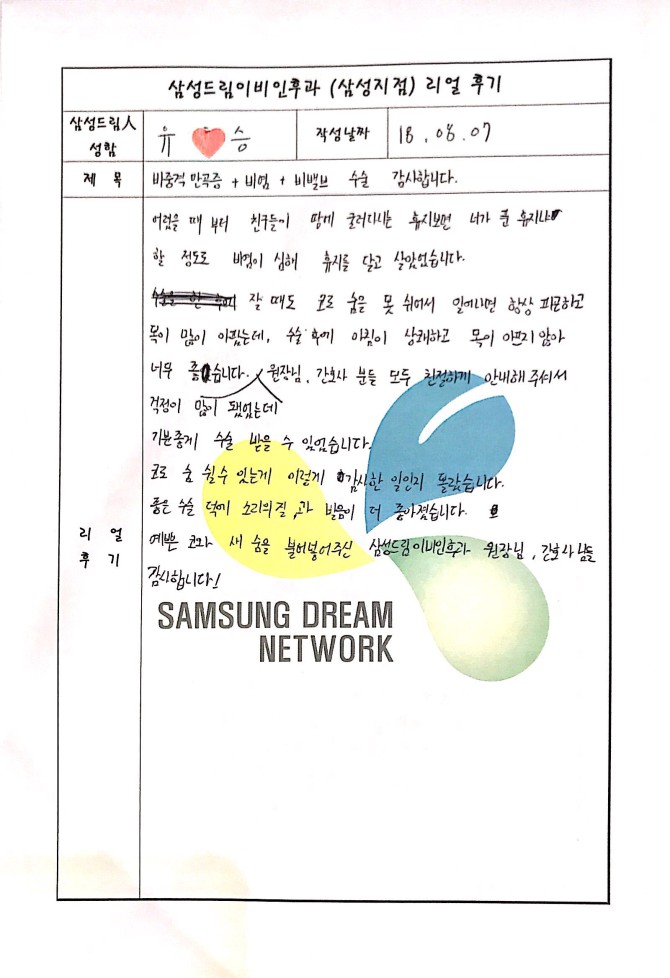 삼성드림이비인후과 (삼성지점) 리얼 후기
삼성드림人 성함
유 ♥ 승
작성날짜
18.08.07
제 목
비중격만곡증 + 비염 + 비밸브 수술 감사합니다.
리얼 후기
어렸을 때 부터 친구들이 땅에 굴러다니는 휴지보면 너가 푼 휴지냐
할 정도로 비염이 심해 휴지를 달고 살았었습니다.
잘 때도 코로 숨을 못 쉬어서 일어나면 항상 피곤하고
목이 많이 아팠는데, 수술 후에 아침이 상쾌하고 목이 아프지 않아
너무 좋습니다. 원장님, 간호사 분들 모두 친절하게 안내해 주셔서
걱정이 많이 됐었는데
기분좋게 수술 받을 수 있었습니다.
코로 숨 쉴수 있는게 이렇게 감사한 일인지 몰랐습니다.
좋은 수술 덕에 소리의 질, 과 발음이 더 좋아졌습니다.
예쁜 코와 새 숨을 불어넣어주신 삼성드림이비인후과 원장님, 간호사님들
감사합니다!
SAMSUNG DREAM
NETWORK